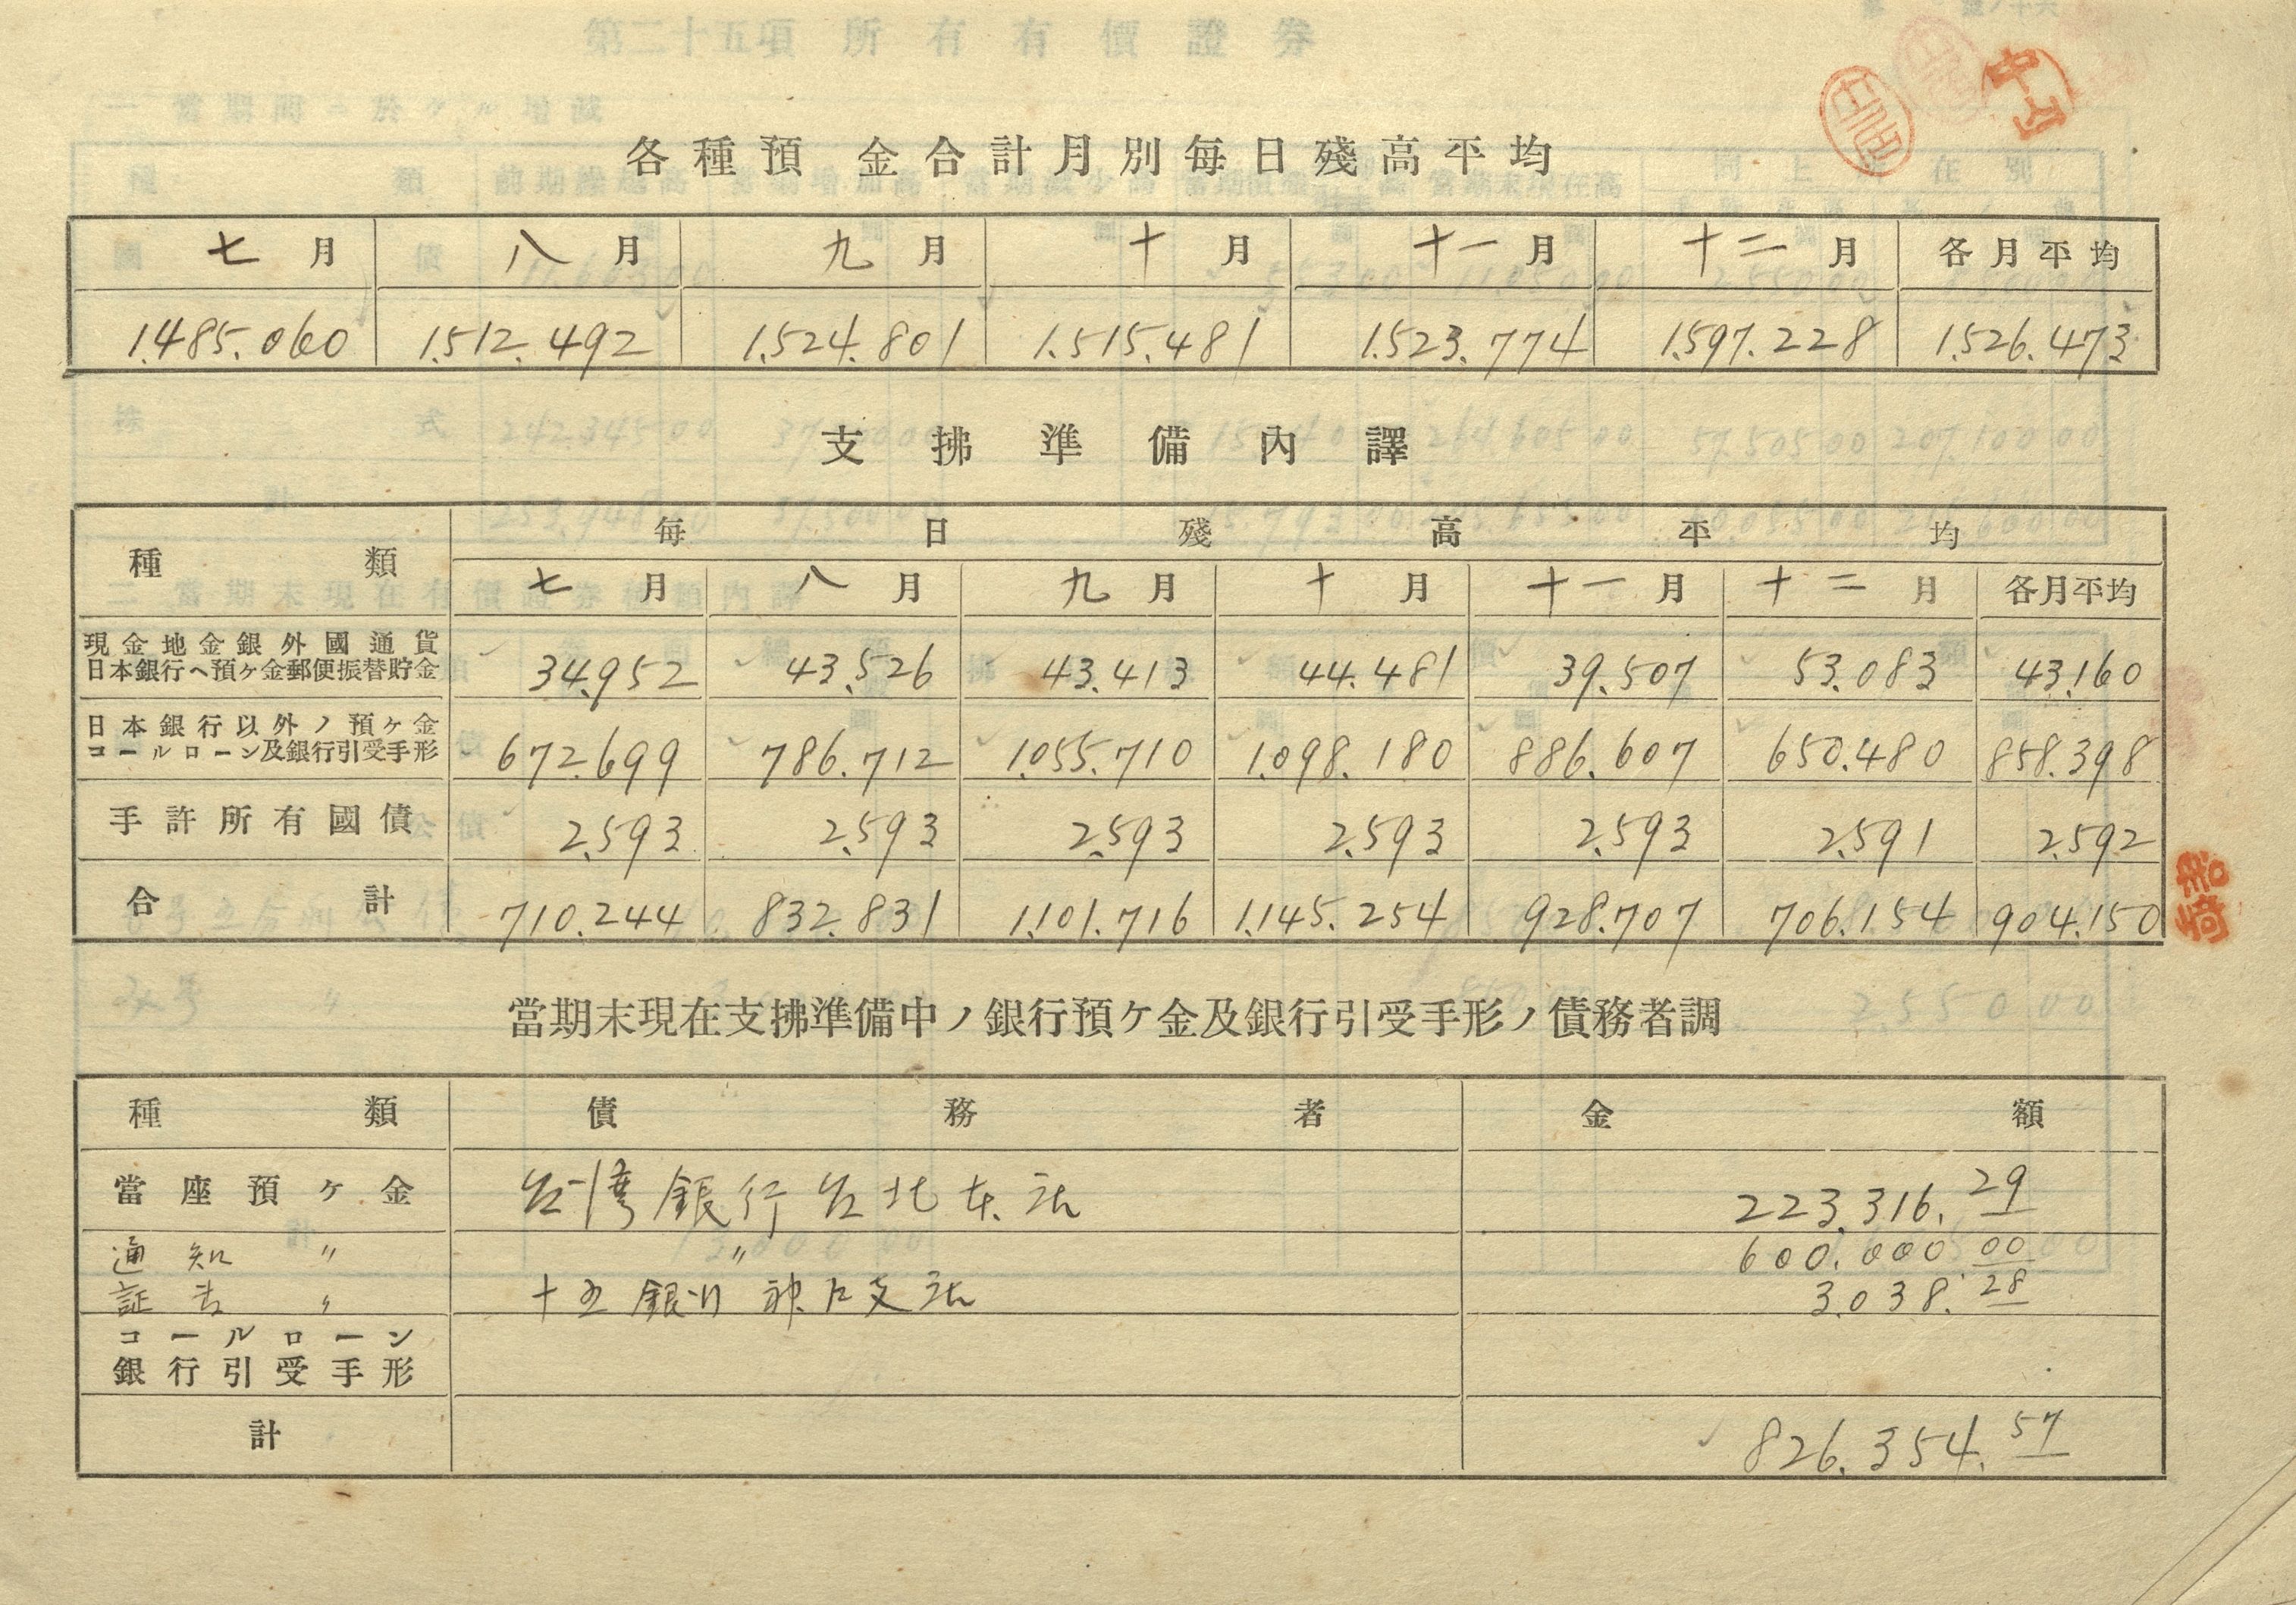 各種預金合計月別毎日殘高平均
七月 八月 九月 十月 十一月 十二月 各月平均
1.485.060 1.512.492 1.524.801 1.515.481 1.523.774 1.597.228 1.526.473
支拂準備內譯
種類 每日殘高平均
七月 八月 九月 十月 十一月 十二月 各月平均
現金地金銀外國通貨
日本銀行ヘ預ヶ金郵便振替貯金 34.952 43.526 43.413 44.481 39.507 53.083 43.160
日本銀行以外ノ預ヶ金
コールローン及銀行引受手形 672.699 786.712 1.055.710 1.098.180 886.607 650.480 858.398
手許所有國債 2.593 2.593 2.593 2.593 2.593 2.591 2.592
合計 710.244 832.831 1.101.716 1.145.254 928.707 706.154 904.150
當期末現在支拂準備中ノ銀行預ケ金及銀行引受手形ノ債務者調
種類 債務者 金額
當座預ヶ金 台湾銀行台北本店 223.316.29
通知〃 〃 600.000.00
〃 十五銀行神戸支店 3.038.28
コールローン
銀行引受手形
計 826.354.57